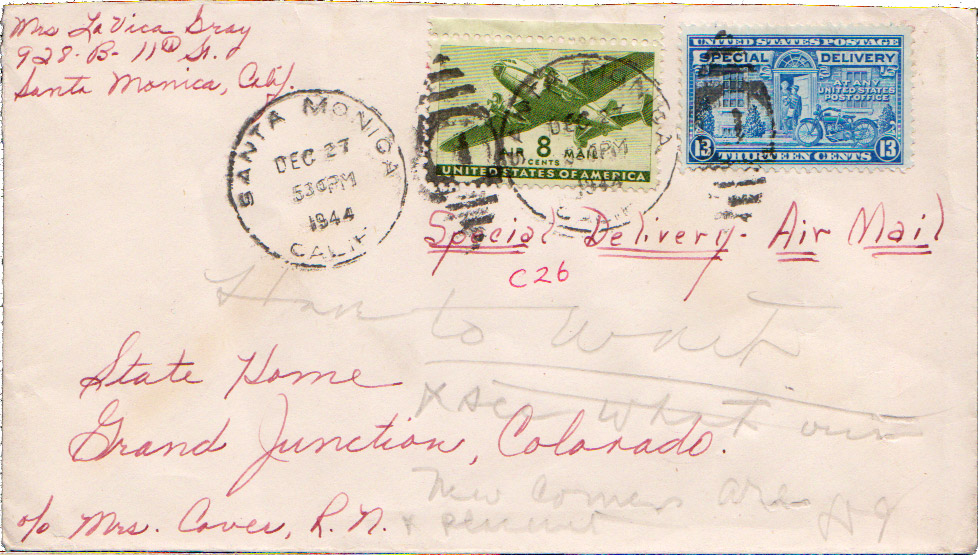 Mrs LaVica Gray
928-B- 11th St.
Santa Monica, Calif.
SANTA MONICA
DEC 27
530PM
1944
CALIF.
AIR 8 MAIL
CENTS
UNITED STATES OF AMERICA
UNITED STATES POSTAGE
SPECIAL DELIVERY
AT ANY
UNITED STATES
POST OFFICE
13 THIRTEEN CENTS 13
SANTA MONICA
DEC 27
530PM
1944
CALIF.
Special Delivery - Air Mail
C26
to Wait
State Home
x see what our
Grand Junction, Colorado.
New Comers are
c/o Mrs. Cover, R.N.